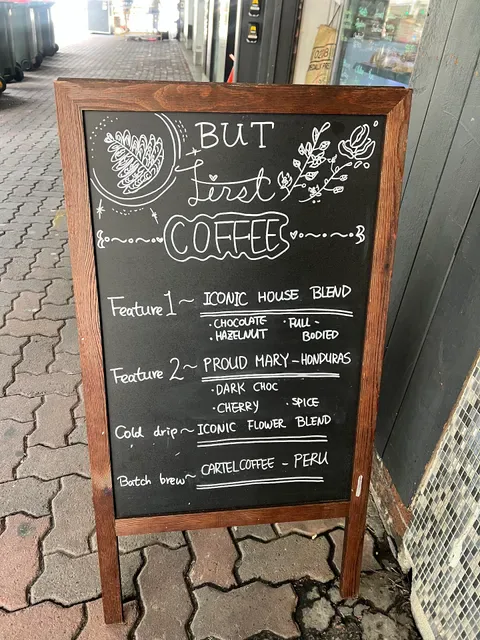 BUT
First
COFFEE
Feature 1 ~ ICONIC HOUSE BLEND
· CHOCOLATE · FULL -
· HAZELNUT BODIED
Feature 2 ~ PROUD MARY - HONDURAS
· DARK CHOC
· CHERRY · SPICE
Cold drip ~ ICONIC FLOWER BLEND
Batch brew ~ CARTEL COFFEE - PERU